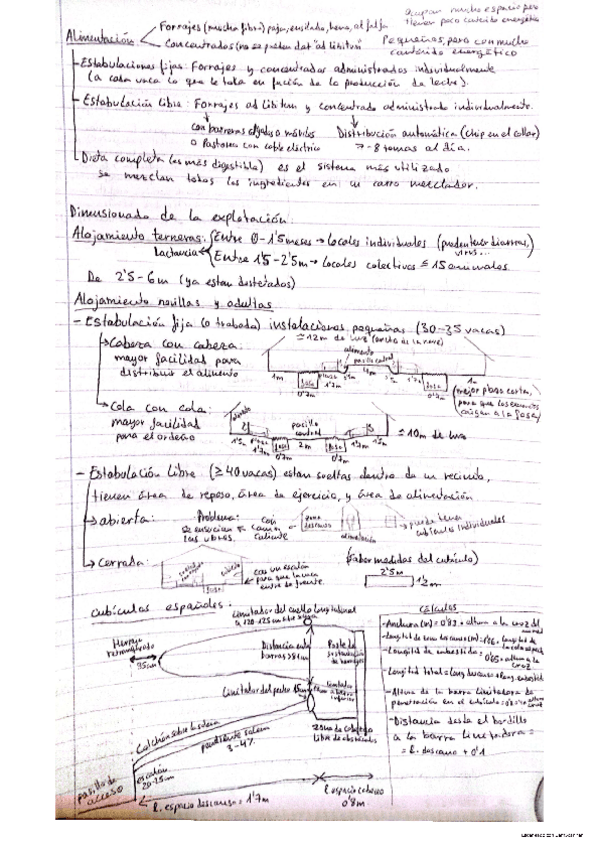 Ocupan mucho espacio pero
tienen poco contenido energético
Alimentación
Forrajes (mucha fibra) paja, ensilado, heno, alfalfa
Concentrados (no se pueden dar "ad libitum")
Pequeños, pero con mucho
contenido energético
- Estabulaciones fijas: Forrajes y concentrados administrados individualmente
(a cada vaca lo que le toca en función de la producción de leche).
- Estabulación libre: Forrajes ad libitum y concentrado administrado individualmente.
con barreras fijas o móviles
o Pastores con cable eléctrico
Distribución automática (chip en el collar)
7-8 tomas al día.
Dieta completa (es más digestible) es el sistema más utilizado
se mezclan todos los ingredientes en un carro mezclador.
Dimensionado de la explotación.
Alojamiento terneras:
Lactancia
Entre 0-1'5 meses → Locales individuales (pueden tener diarreas, virus...
Entre 1'5-2'5m → Locales colectivos ≤ 15 animales
De 2'5-6m (ya estan destetados)
Alojamiento novillas y adultas
- Estabulación fija (o trabada) instalaciones pequeñas (30-35 vacas)
≃12m de luz (ancho de la nave)
Cabeza con cabeza:
mayor facilidad para
distribuir el alimento
alimento
pasillo central
1m
fosa
0'7m
1'7m
fosa
0'7m
1m
(mejor plaza corta,
para que los excrementos
caigan a la fosa)
Cola con cola:
mayor facilidad
para el ordeño
pasillo
central
1'5m
1'7m
fosa
0'7m
2m
fosa
0'7m
1'7m
1'5m
≃10m de luz
- Estabulación Libre (≥40 vacas) estan sueltas dentro de un recinto,
tienen área de reposo, área de ejercicio, y área de alimentación
abierta:
Problema:
se ensucian
las ubres.
con
cama
caliente
zona
descanso
alimentación
puede tener
cubículos individuales
Cerrada:
con un escalón
para que la vaca
entre de frente.
(Saber medidas del cubículo)
2'5m
1'2m
cubículos españoles:
Limitador del cuello longitudinal
a 120-125cm
Herraje
retranqueado
35cm
Distancia entre
barras >81cm
Poste de
sustentación
de herrajes
Limitador del pecho
zona de cabeza
libre de obstáculos
Colchón sobre la solera
pendiente solera
3-4%
escalón
20-25cm
pasillo de
acceso
l. espacio descanso = 1'7m
l. espacio cabeceo
0'8m
Cálculos
- Anchura (m) = 0'83 · altura a la cruz del animal
- Longitud de embestida = 0'65 · altura a la
cruz
- Longitud total = long descanso + long. embestida
- Altura de la barra limitadora de
penetración en el cubículo = 0'8 · altura cruz
- Distancia desde el bordillo
a la barra limitadora =
= l. descanso + 0'1